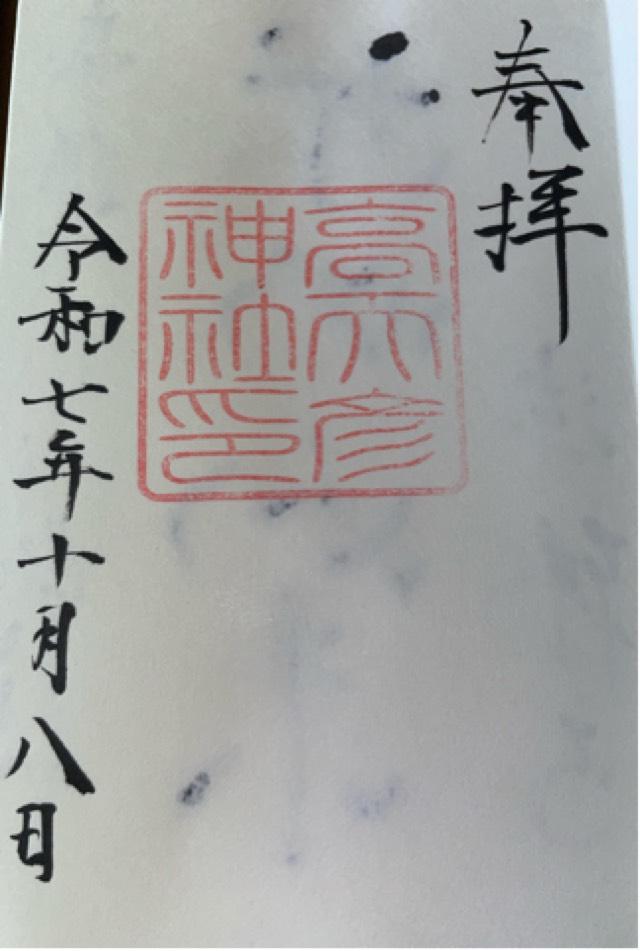 奉拝
高天彦
神社印
令和七年十月八日